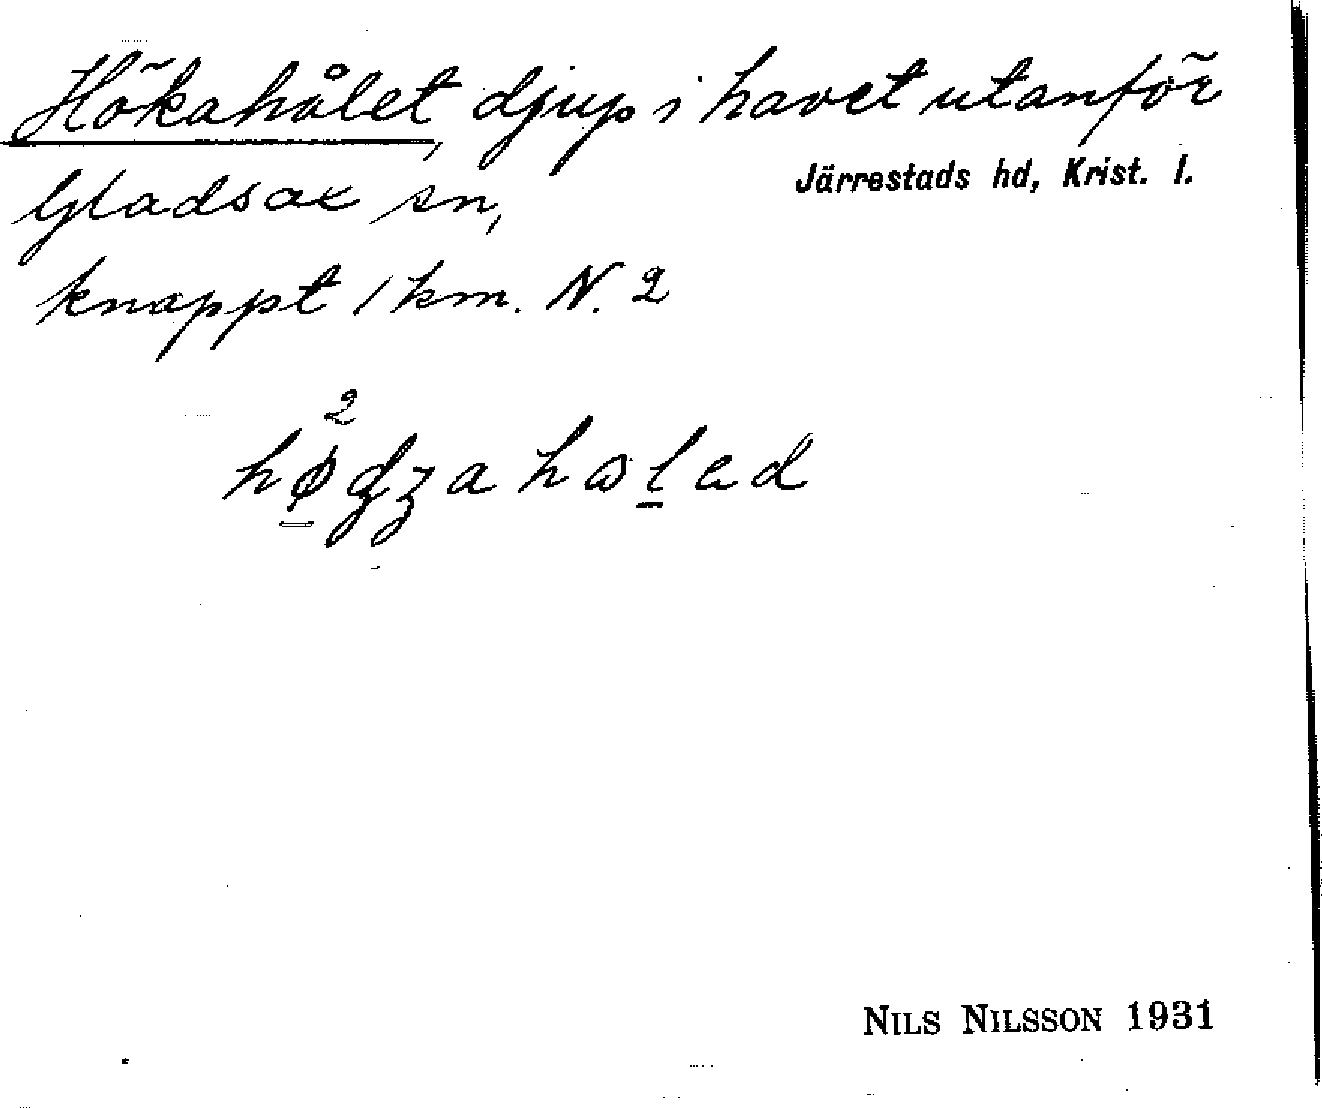 Hökahålet, djup i havet utanför
Gladsax sn, Järrestads hd, Krist. l.
knappt 1 km. N. 2
2
høgʒahaləd
NILS NILSSON 1931